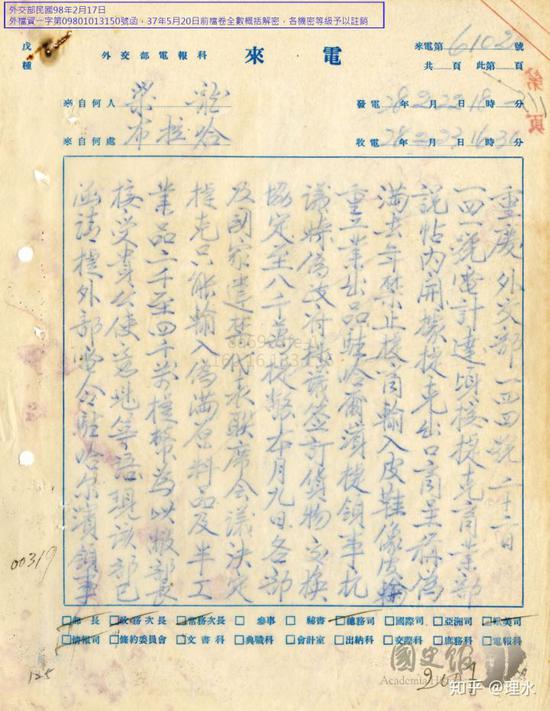 外交部民國98年2月17日
外檔資一字第09801013150號函，37年5月20日前檔卷全數概括解密，各機密等級予以註銷
戊種
外交部電報科
來電
來電第6102號
共 頁 此第 頁
來自何人
梁龍
發電28年2月22日18時 分
來自何處
布拉哈
收電28年2月23日16時30分
重慶外交部一四四號二十二日
一四一號電計達頃接捷克商業部
說帖內開據捷克出口商呈稱偽
滿去年禁止捷商輸入皮鞋像皮輪
重工業出品駐哈爾濱捷領事抗
議後偽政府擬議簽訂貨物交換
協定至八千萬捷幣本月九日各部
及國家造幣代表聯席會議決定
捷克只能輸入偽滿原料品及半工
業品二千至四千萬捷幣為以敝部長
接受貴公使意地等語現該部已
函請捷外部電令駐哈尔濱領事
00319
部長
政務次長
常務次長
參事
秘書
總務司
國際司
亞洲司
歐美司
情報司
條約委員會
文書科
典職科
會計室
出納科
交際科
庶務科
電報科
國史館
Academia Historica
125
知乎 @理水